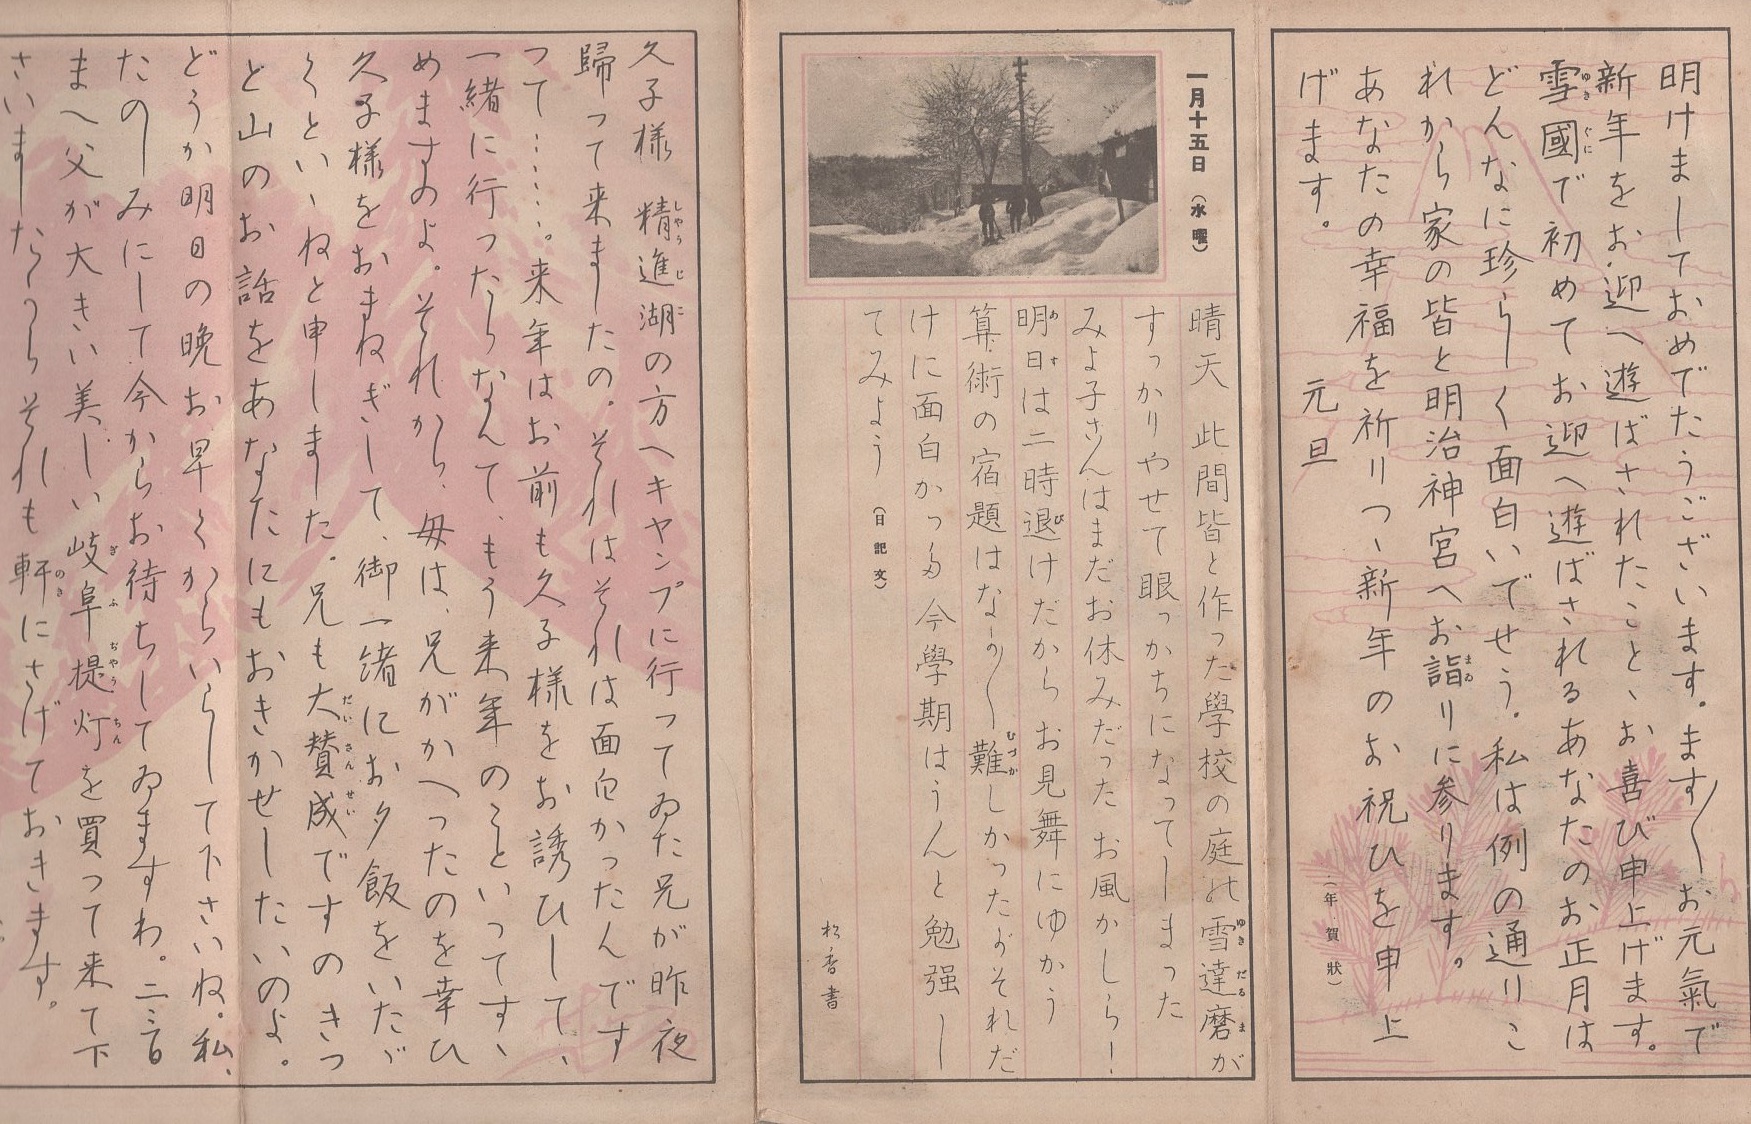 明けましておめでたうございます。ます〱お元氣で
新年をお迎へ遊ばされたこと、お喜び申上げます。
雪國で初めてお迎へ遊ばされるあなたのお正月は
どんなに珍らしく面白いでせう。私は例の通りこ
れから家の皆と明治神宮へお詣りに参ります。
あなたの幸福を祈りつヽ新年のお祝ひを申上
げます。
元旦
(年賀狀)
一月十五日(水曜)
晴天 此間皆と作った學校の庭の雪達磨が
すっかりやせて眼っかちになってしまった
みよ子さんはまだお休みだった お風かしら!
明日は二時退けだからお見舞にゆかう
算術の宿題はなか〱難しかったがそれだ
けに面白かった 今學期はうんと勉强し
てみよう (日記文)
松香書
久子様 精進湖の方へキャンプに行ってゐた兄が昨夜
歸って来ましたの。それはそれは面白かったんです
って……。来年はお前も久子様をお誘ひして、
一緒に行ったらなんて、もう来年のことといってすヽ
めますのよ。それから、母は、兄がかへったのを幸ひ
久子様をおまねぎして、御一緒にお夕飯をいたゞ
くといヽねと申しました。兄も大賛成ですのきっ
と山のお話をあなたにもおきかせしたいのよ。
どうか明日の晩お早くからいらして下さいね。私、
たの〱みにして今からお待ちしてゐますわ。二三日
まへ父が大きい美しい岐阜提灯を買って来て下
さいましたからそれも軒にさげておきます。